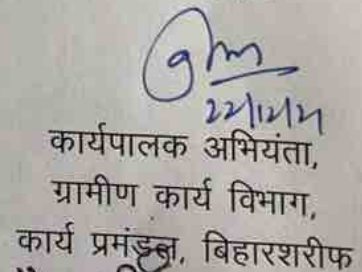 22/12/21
कार्यपालक अभियंता,
ग्रामीण कार्य विभाग,
कार्य प्रमंडल, बिहारशरीफ